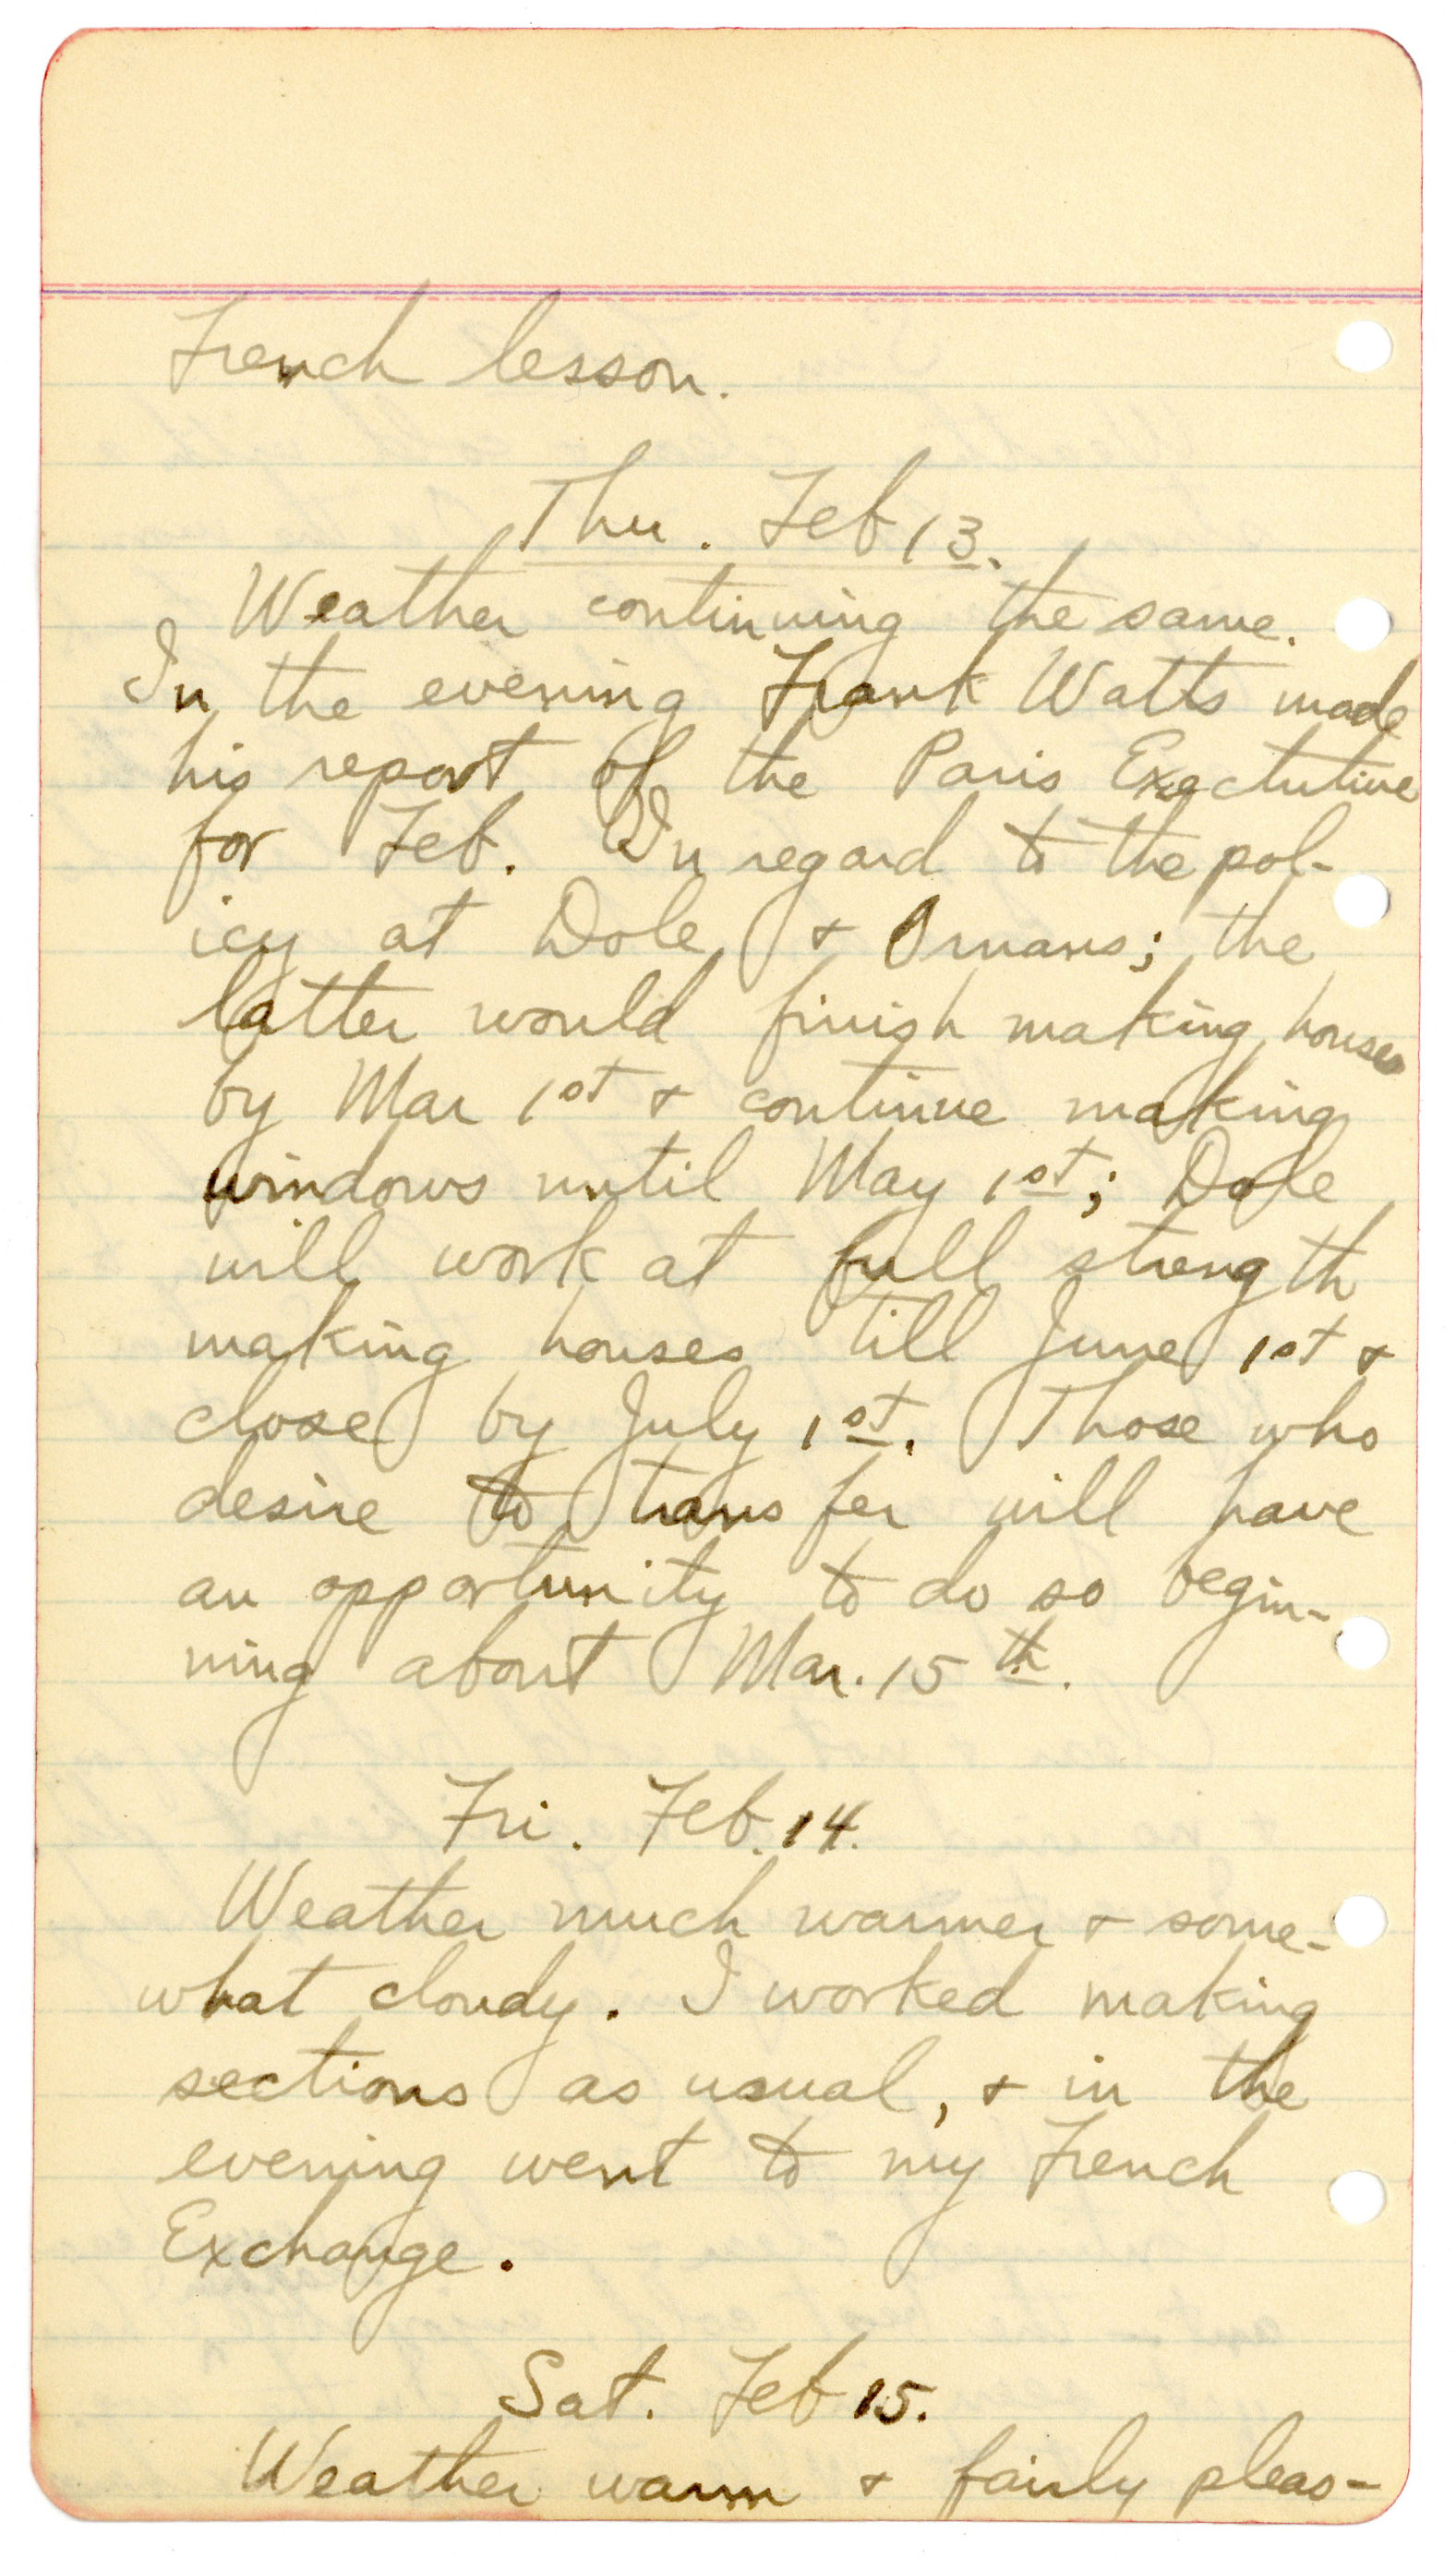 French lesson.
Thu. Feb 13.
Weather continuing the same.
In the evening Frank Watts made
his report of the Paris Exectutive
for Feb. In regard to the pol-
icy at Dole & Ornans; the
latter would finish making houses
by Mar 1st & continue making
windows until May 1st; Dole
will work at full strength
making houses till June 1st &
close by July 1st. Those who
desire to transfer will have
an opportunity to do so begin-
ning about Mar. 15th.
Fri. Feb. 14.
Weather much warmer & some-
what cloudy. I worked making
sections as usual, & in the
evening went to my French
Exchange.
Sat. Feb 15.
Weather warm & fairly pleas-